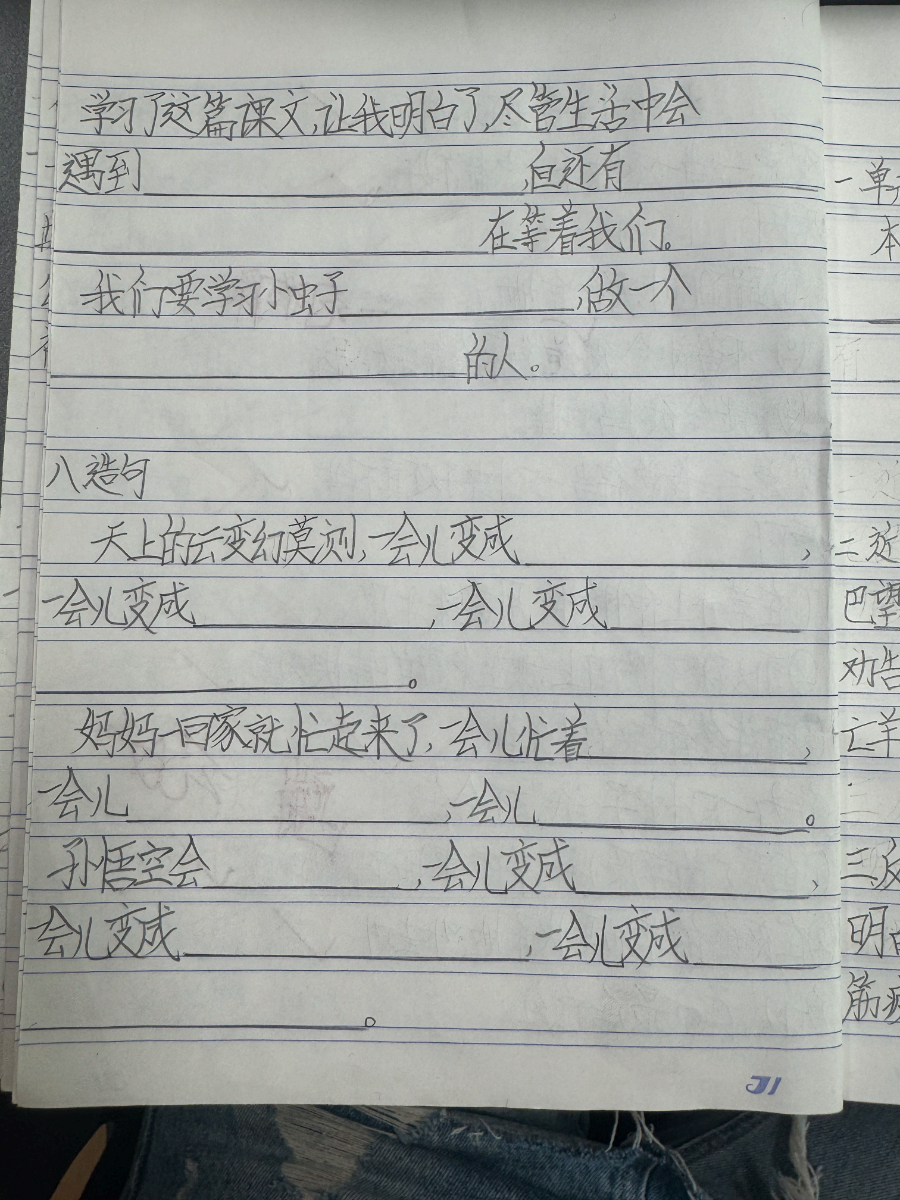 学习了这篇课文,让我明白了,尽管生活中会
遇到____________,但还有______
____________在等着我们。
我们要学习小虫子________,做一个
____________的人。
八造句
天上的云变幻莫测,一会儿变成________,
一会儿变成________,一会儿变成______
____________。
妈妈一回家就忙起来了,一会儿忙着________,
一会儿__________,一会儿________。
孙悟空会______,一会儿变成________,
一会儿变成__________,一会儿变成____
__________。
31
一单
本
二
巴望
劝告
亡羊
三
明
筋疲